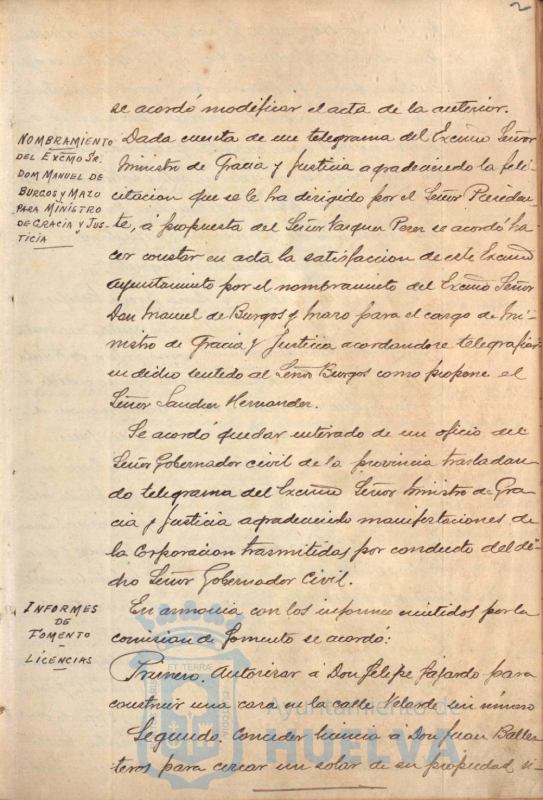 2
se acordó modificar el acta de la anterior.
NOMBRAMIENTO
DEL EXCMO SR.
DOM MANUEL DE
BURGOS Y MAZO
PARA MINISTRO
DE GRACIA Y JUS-
TICIA
Dada cuenta de un telegrama del Excmo Señor
Ministro de Gracia y Justicia agradeciendo la feli
citacion que se le ha dirigido por el Señor Presiden
te, á propuesta del Señor Vazquez Perez se acordó ha
cer constar en acta la satisfaccion de este Excmo
Ayuntamiento por el nombramiento del Excmo Señor
Don Manuel de Burgos y Mazo para el cargo de Mi
nistro de Gracia y Justicia acordandose telegrafiar
en dicho sentido al Señor Burgos como propone el
Señor Sanchez Hernandez.
Se acordó quedar enterado de un oficio del
Señor Gobernador civil de la provincia trasladan
do telegrama del Excmo Señor Ministro de Gra
cia y Justicia agradeciendo manifestaciones de
la Corporacion trasmitidas por conducto del di
cho Señor Gobernador Civil.
INFORMES
DE
FOMENTO
-
LICENCIAS
En armonia con los informes emitidos por la
comision de Fomento se acordó:
Primero. Autorizar á Don Felipe Fajardo para
construir una casa en la calle Velarde sin número
Segundo. Conceder licencia a Don Juan Balles
teros para cercar un solar de su propiedad si-
Ayuntamiento de
HUELVA